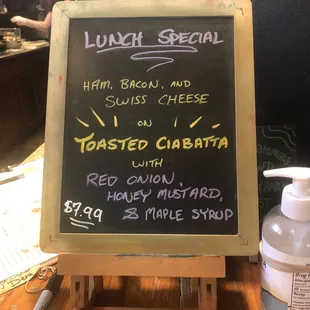 LUNCH SPECIAL
HAM, BACON, AND
SWISS CHEESE
ON
TOASTED CIABATTA
WITH
RED ONION,
HONEY MUSTARD,
$7.99 & MAPLE SYRUP